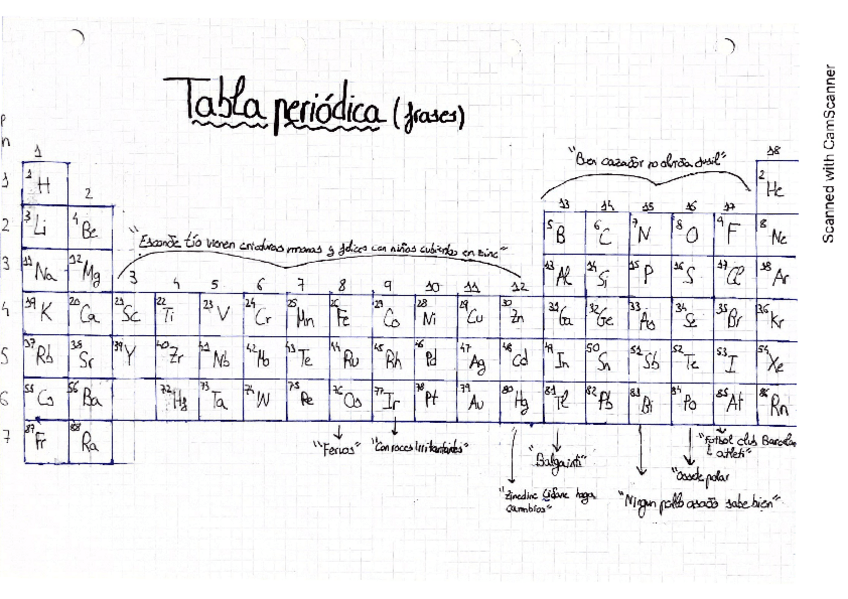 Tabla periódica (frases)
Scanned with CamScanner
1
18
"Buen cazador no abrirás fusil"
1 H
2
13 14 15 16 17
2 He
2
3 Li 4 Be
"Esconde tío vienen criaturas monas y felices con niños cubiertos en zinc"
5 B 6 C 7 N 8 O 9 F 8 Ne
3
11 Na 12 Mg
3 4 5 6 7 8 9 10 11 12
13 Al 14 Si 15 P 16 S 17 Cl 18 Ar
4
19 K 20 Ca 21 Sc 22 Ti 23 V 24 Cr 25 Mn 26 Fe Co 28 Ni 29 Cu 30 Zn 31 Ga 32 Ge 33 As 34 Se 35 Br 36 Kr
5
37 Rb 38 Sr 39 Y 40 Zr 41 Nb 42 Mo 43 Te 44 Ru 45 Rh Pd 47 Ag 48 Cd 49 In 50 Sn Sb 52 Te 53 I 54 Xe
6
55 Cs 56 Ba 72 73 Ta 74 W 75 Re 76 Os 77 Ir 78 Pt 79 Au 80 Hg 81 Tl 82 Pb 83 Bi 84 Po 85 At 86 Rn
7
87 Fr 88 Ra
"Con roces Irritantantes"
"Futbol club
"Zinedine Zidane haga
cambios"
"Ningun pollo asado sabe bien"